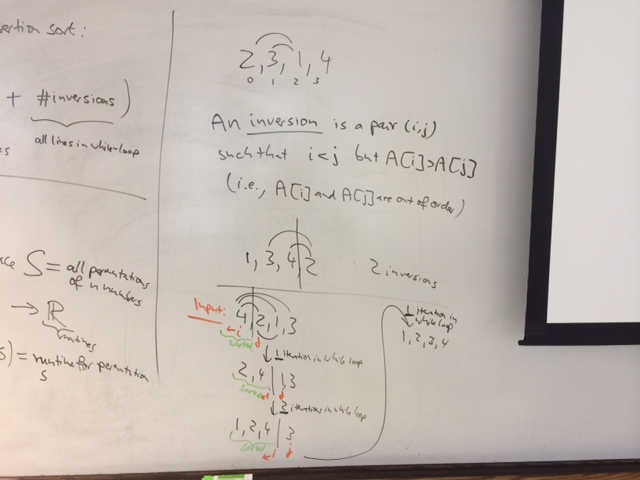 ertion sort:
+ #inversions)
all lines in while-loop
S = all permutations
of n numbers
→ ℝ
runtimes
s) = runtime for permutation
s
2, 3, 1, 4
0 1 2 3
An inversion is a pair (i,j)
such that i<j but A[i]>A[j]
(i.e., A[i] and A[j] are out of order)
1, 3, 4 | 2
2 inversions
Input:
4 | 2, 1, 3
sorted
i j
↓ 1 iteration in while loop
2, 4 | 1, 3
sorted
i j
↓ 2 iterations in while loop
1, 2, 4 | 3
sorted
i j
1 iteration in
while loop
1, 2, 3, 4